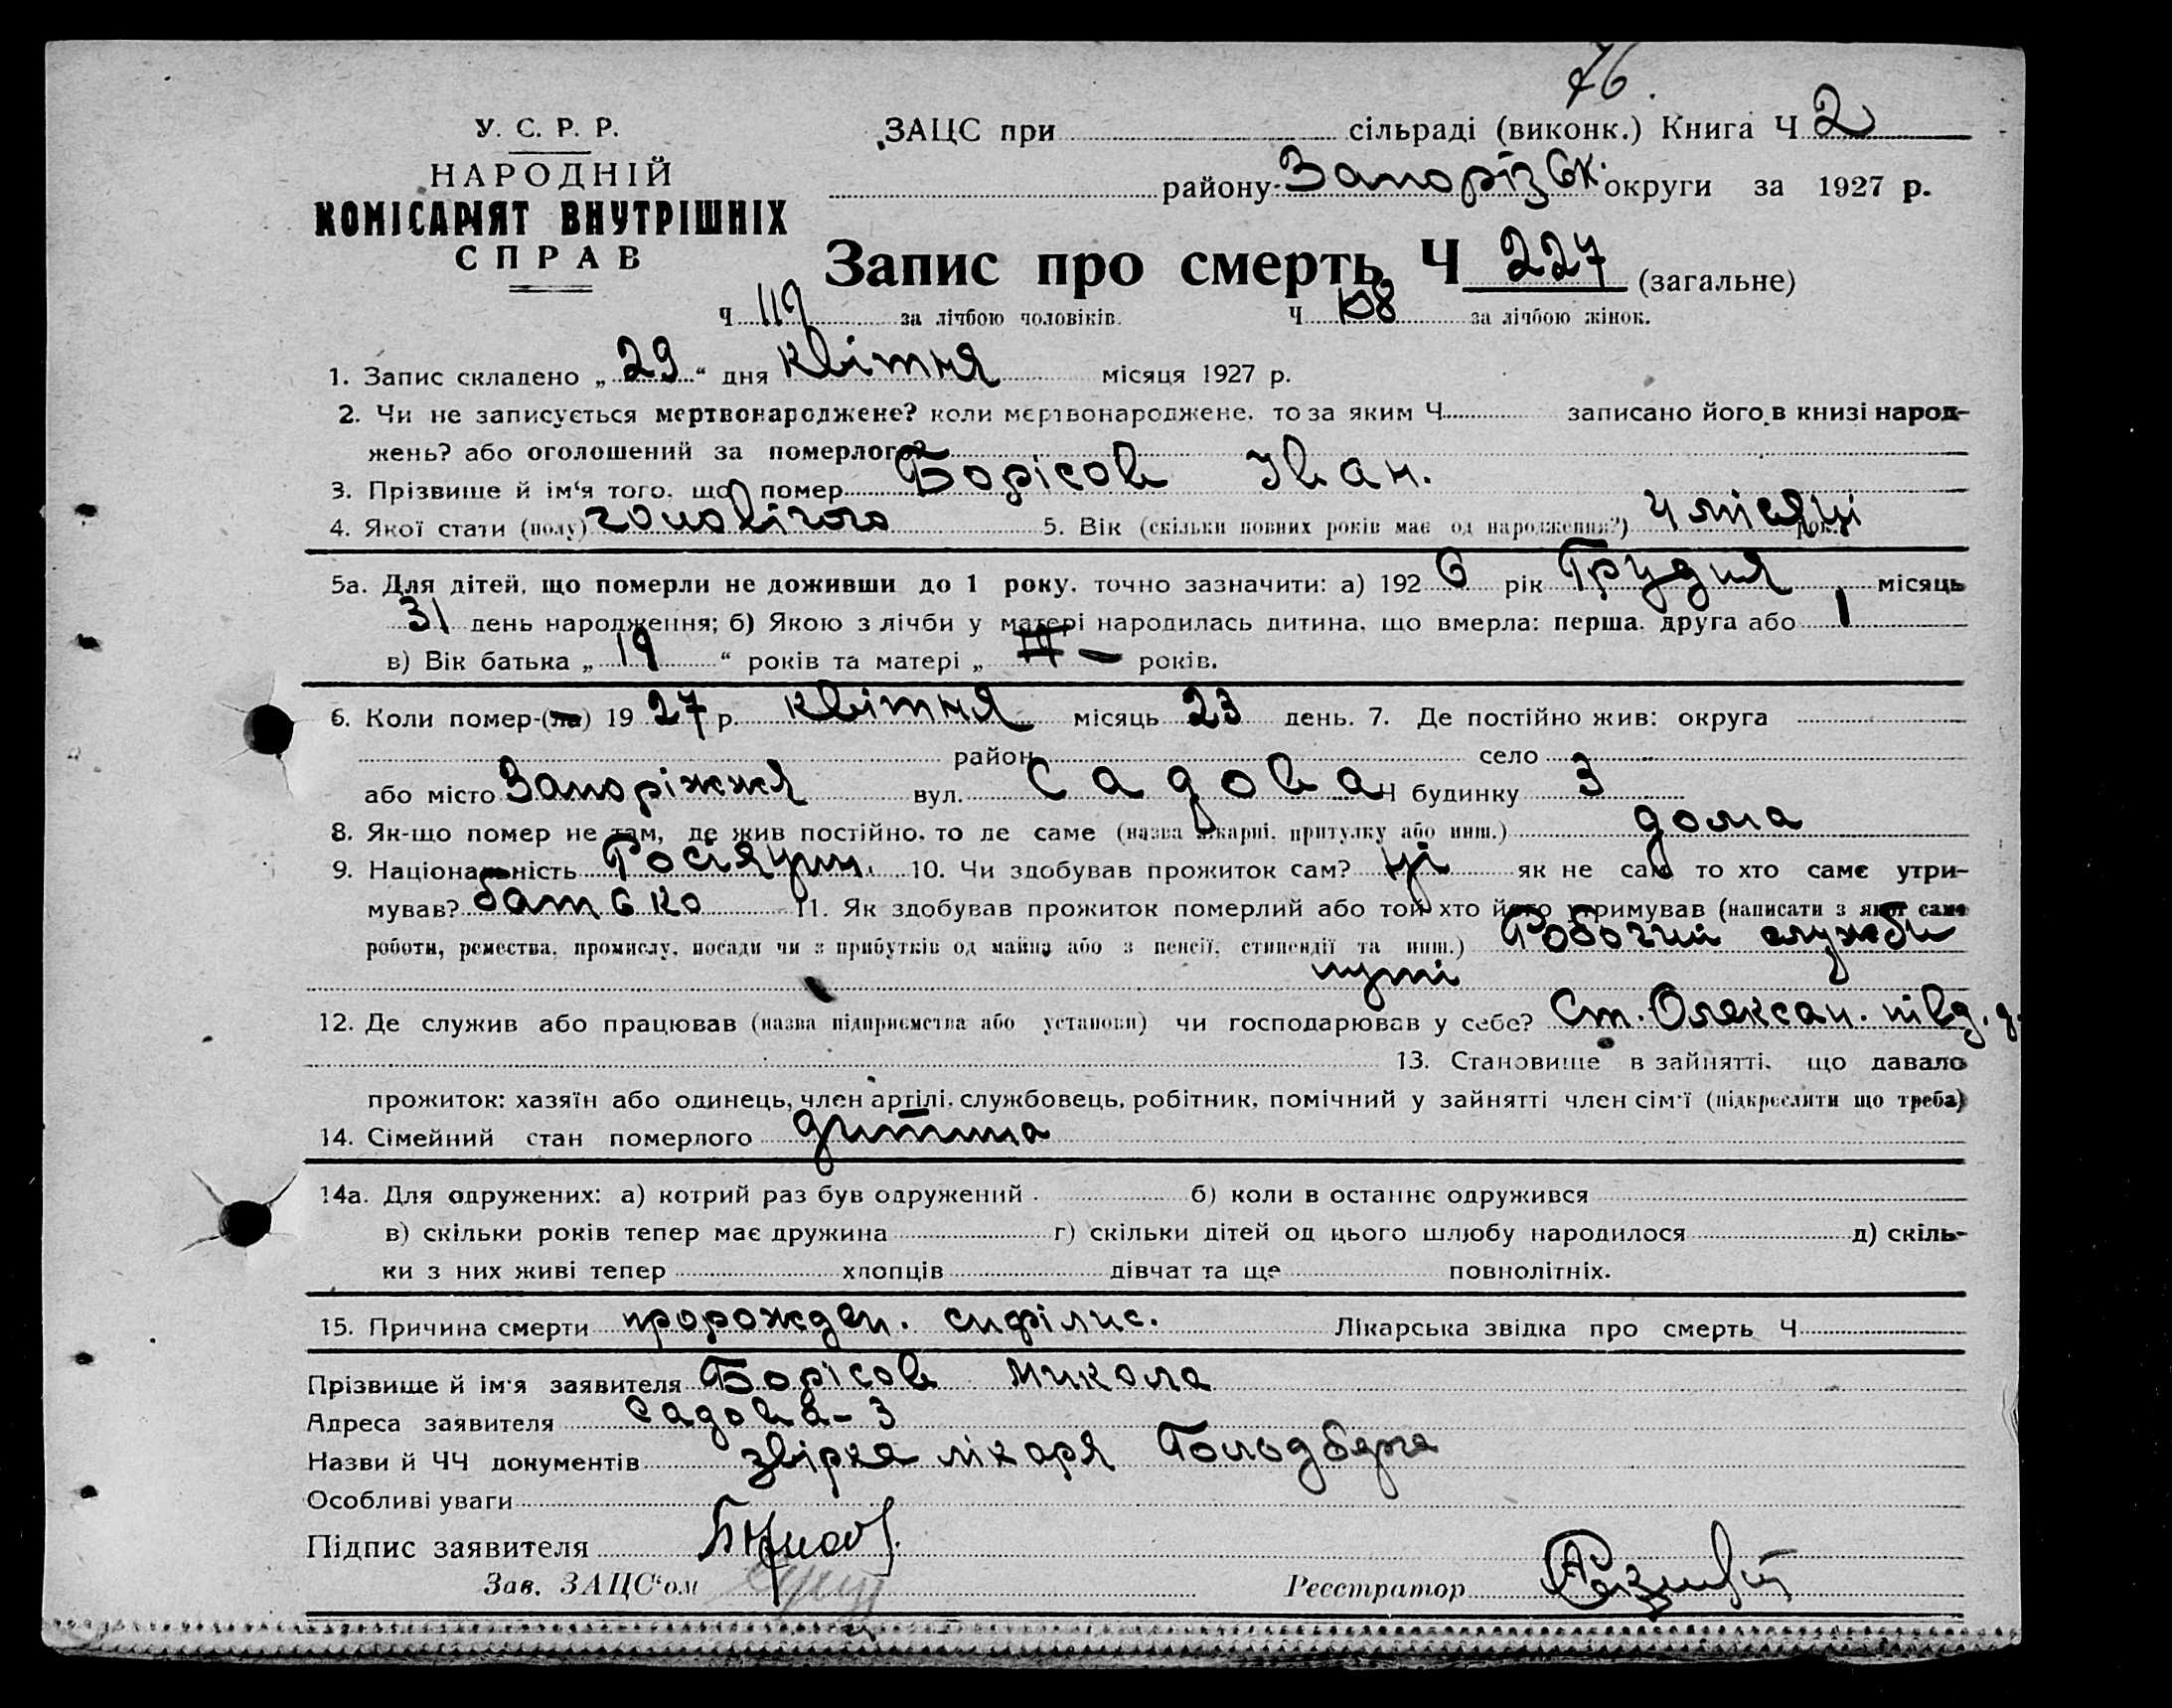 76.
У. С. Р. Р.
НАРОДНІЙ
КОМІСАРІЯТ ВНУТРІШНІХ
СПРАВ
ЗАЦС при сільраді (виконк.) Книга Ч 2
району Запорізьк. округи за 1927 р.
Запис про смерть Ч 227 (загальне)
Ч 119 за лічбою чоловіків. Ч 108 за лічбою жінок.
1. Запис складено „ 29 “ дня квітня місяця 1927 р.
2. Чи не записується мертвонароджене? коли мертвонароджене, то за яким Ч записано його в книзі народ-
жень? або оголошений за померлого?
3. Прізвище й ім‘я того, що помер Борісов Іван.
4. Якої стати (полу) чоловічого 5. Вік (скільки повних років має од народження?) 4 місяці рок.
5а. Для дітей, що померли не доживши до 1 року, точно зазначити: а) 1926 рік Грудня місяць
31 день народження; б) Якою з лічби у матері народилась дитина, що вмерла: перша, друга або 1
в) Вік батька „ 19 “ років та матері „ – років.
6. Коли помер-(ла) 1927 р. квітня місяць 23 день. 7. Де постійно жив: округа
район село
або місто Запоріжжя вул. Садова Ч будинку 3
8. Як-що помер не там, де жив постійно, то де саме (назва лікарні, притулку або инш.) дома
9. Національність Росіянин. 10. Чи здобував прожиток сам? ні як не сам то хто саме утри-
мував? батько 11. Як здобував прожиток померлий або той хто його утримував (написати з якої саме
роботи, ремества, промислу, посади чи з прибутків од майна або з пенсії, стипендії та инш.) Робочий служби
путі
12. Де служив або працював (назва підприємства або установи) чи господарював у себе? Ст. Олексан. півд. д.
13. Становище в зайнятті, що давало
прожиток: хазяїн або одинець, член артілі, службовець, робітник, помічний у зайнятті член сім‘ї (підкреслити що треба)
14. Сімейний стан померлого дитина
14а. Для одружених: а) котрий раз був одружений б) коли в останнє одружився
в) скільки років тепер має дружина г) скільки дітей од цього шлюбу народилося д) скіль-
ки з них живі тепер хлопців дівчат та ще повнолітніх.
15. Причина смерти пророжден. сифіліс. Лікарська звідка про смерть Ч
Прізвище й ім‘я заявителя Борісов Микола
Адреса заявителя Садова-3
Назви й ЧЧ документів звірка лікаря Гольдберга
Особливі уваги
Підпис заявителя
Зав. ЗАЦС‘ом Реєстратор